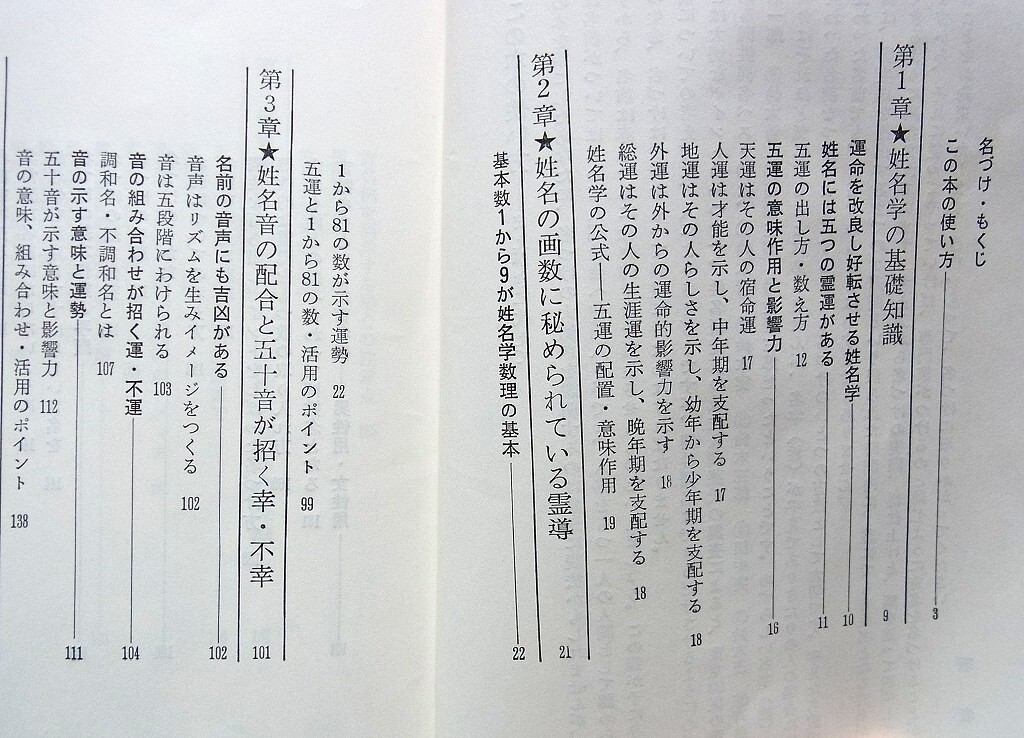 名づけ・もくじ
この本の使い方 3
第1章★姓名学の基礎知識 9
運命を改良し好転させる姓名学 10
姓名には五つの霊運がある 11
五運の出し方・数え方 12
五運の意味作用と影響力 16
天運はその人の宿命運 17
人運は才能を示し、中年期を支配する 17
地運はその人らしさを示し、幼年から少年期を支配する 18
外運は外からの運命的影響力を示す 18
総運はその人の生涯運を示し、晩年期を支配する 18
姓名学の公式――五運の配置・意味作用 19
第2章★姓名の画数に秘められている霊導 21
基本数1から9が姓名学数理の基本 22
1から81の数が示す運勢 22
五運と1から81の数・活用のポイント 99
第3章★姓名音の配合と五十音が招く幸・不幸 101
名前の音声にも吉凶がある 102
音声はリズムを生みイメージをつくる 102
音は五段階にわけられる 103
音の組み合わせが招く運・不運 104
調和名・不調和名とは 107
音の示す意味と運勢 111
五十音が示す意味と影響力 112
音の意味、組み合わせ・活用のポイント 138